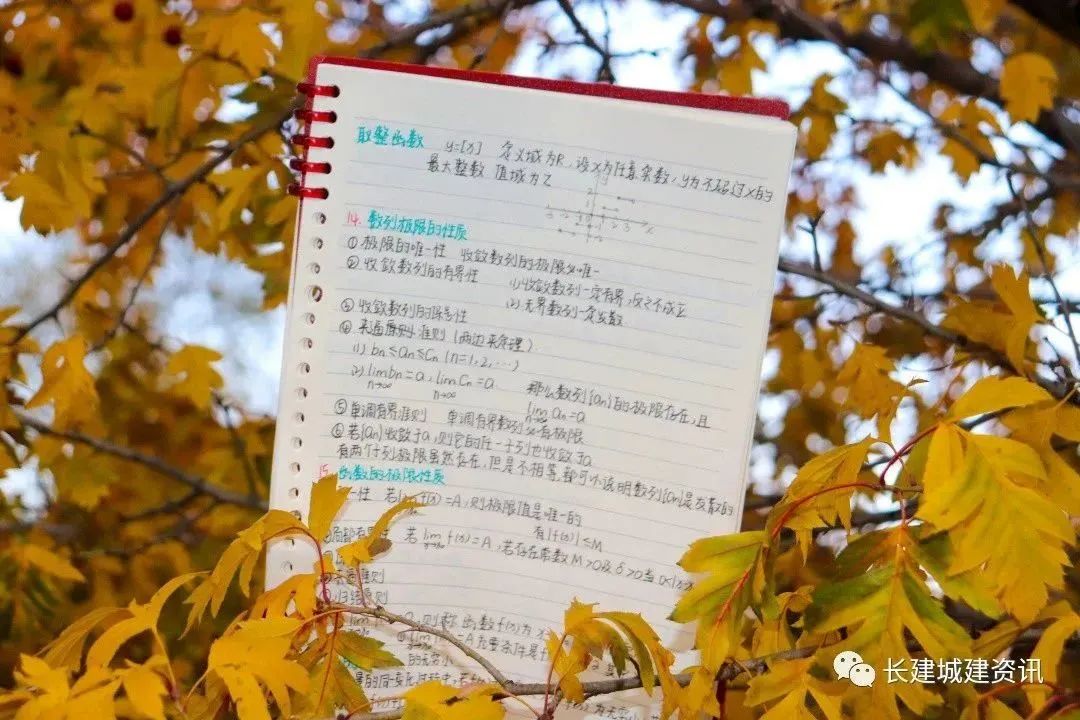 取整函数 y=[x] 定义域为R.设x为任意实数,y为不超过x的
最大整数 值域为Z
14. 数列极限的性质
① 极限的唯一性 收敛数列的极限必唯一
② 收敛数列的有界性 (1)收敛数列一定有界,反之不成立
(2)无界数列一定发散
③ 收敛数列的保号性
④ 夹逼准则 (两边夹定理)
(1) bn≤an≤cn (n=1,2,…)
(2) lim bn=a, lim Cn=a 那么数列{an}的极限存在,且
n→∞ n→∞ lim an=a
⑤ 单调有界准则 单调有界数列必有极限
⑥ 若{an}收敛于a,则它的任一子列也收敛于a
有两个子列极限虽然存在,但是不相等,都可以说明数列{an}是发散的
15. 函数的极限性质
一性 若lim f(x)=A,则极限值是唯一的
局部有界 若 lim f(x)=A,若存在常数M>0及δ>0当0<|x 有|f(x)|≤M
准则
归结原则
则称函数f(x)为
=A充要条件是f
的无穷小
的同一变化过程中
长建城建资讯